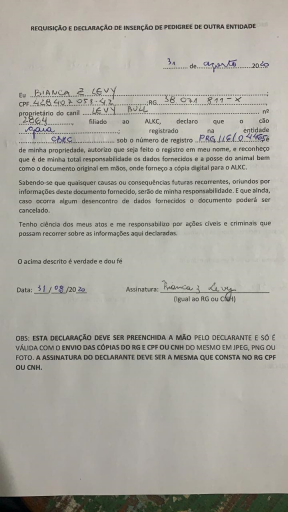 REQUISIÇÃO E DECLARAÇÃO DE INSERÇÃO DE PEDIGREE DE OUTRA ENTIDADE
31 de agosto de 2020
Eu BIANCA Z LEVY ;
CPF 428 407 058-42 ;RG 38 071 811-X ;
proprietário do canil LEVY BULL nº
2864 filiado ao ALKC, declaro que o cão
; registrado na entidade
CBKC sob o número de registro
de minha propriedade, autorizo que seja feito o registro em meu nome, e reconheço
que é de minha total responsabilidade os dados fornecidos e a posse do animal bem
como o documento original em mãos, onde forneço a cópia digital para o ALKC.
Sabendo-se que quaisquer causas ou consequências futuras recorrentes, oriundos por
informações deste documento fornecido, serão de minha responsabilidade. E que ainda,
caso ocorra algum desencontro de dados fornecidos o documento poderá ser
cancelado.
Tenho ciência dos meus atos e me responsabilizo por ações cíveis e criminais que
possam recorrer sobre as informações aqui declaradas.
O acima descrito é verdade e dou fé
Data: 31/08/2020 Assinatura: Bianca Z Levy
(Igual ao RG ou CNH)
OBS: ESTA DECLARAÇÃO DEVE SER PREENCHIDA A MÃO PELO DECLARANTE E SÓ É
VÁLIDA COM O ENVIO DAS CÓPIAS DO RG E CPF OU CNH DO MESMO EM JPEG, PNG OU
FOTO. A ASSINATURA DO DECLARANTE DEVE SER A MESMA QUE CONSTA NO RG CPF
OU CNH.